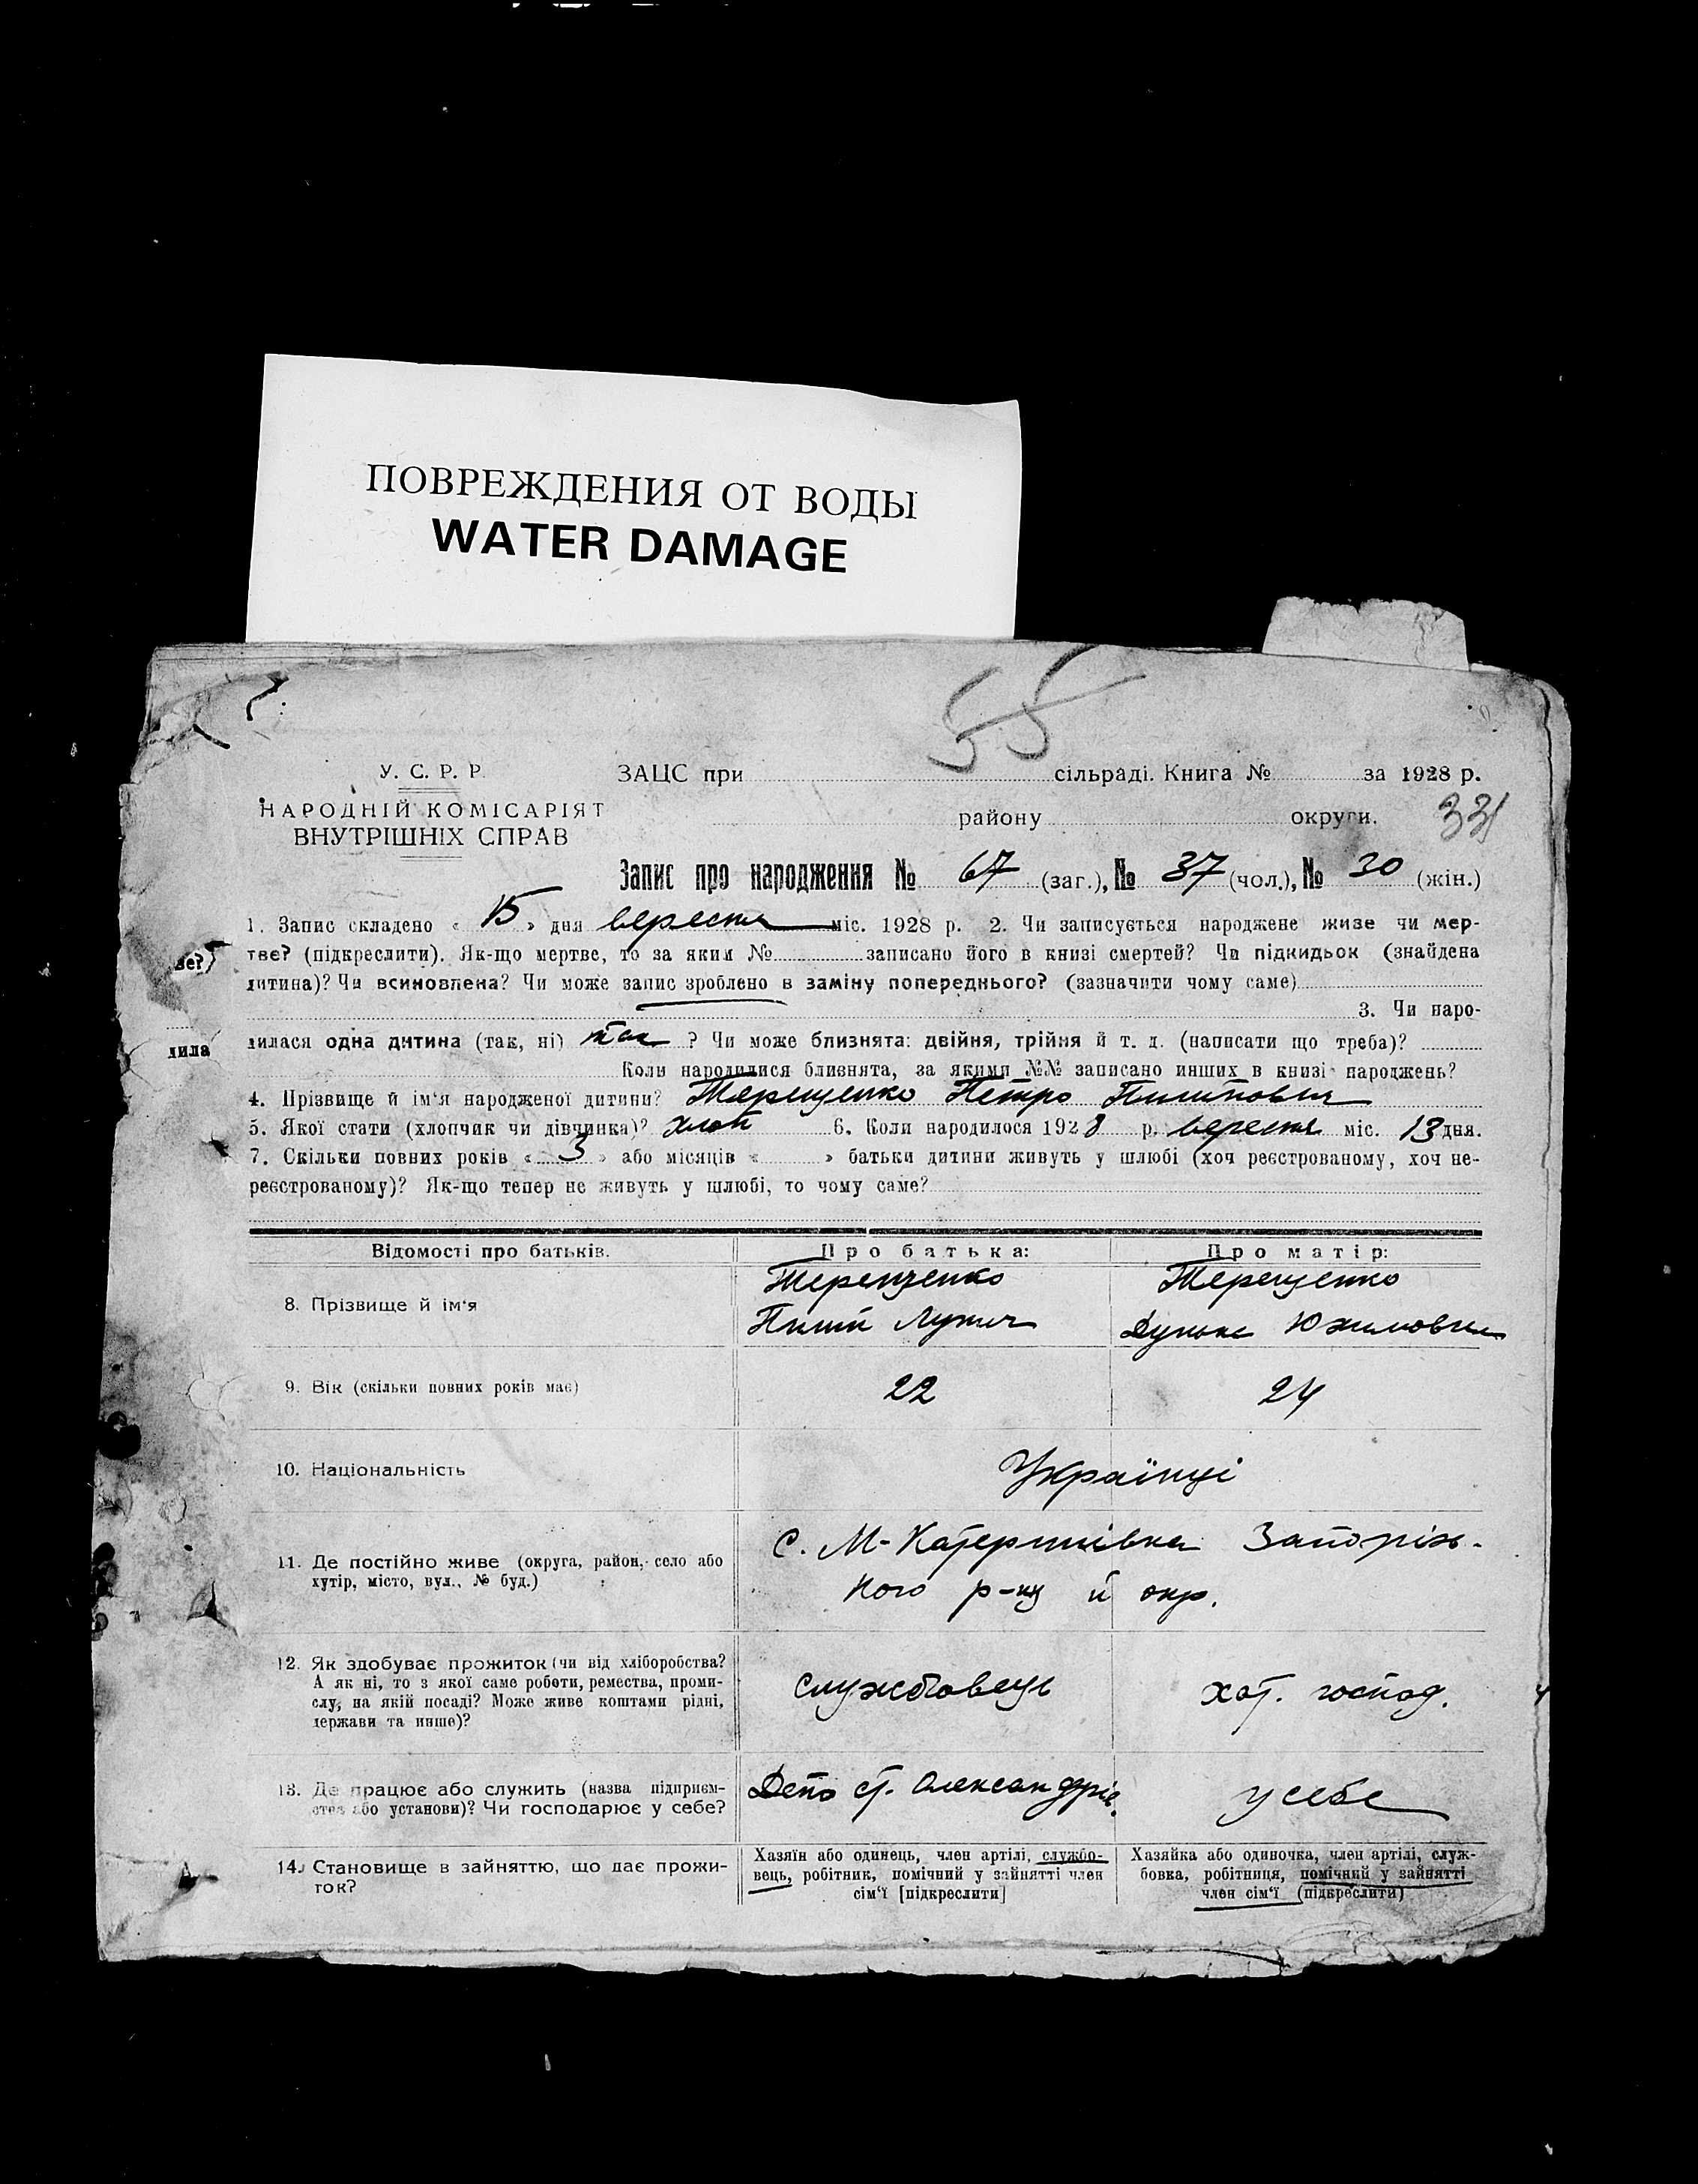 ПОВРЕЖДЕНИЯ ОТ ВОДЫ
WATER DAMAGE
55
У. С. Р. Р.
НАРОДНІЙ КОМІСАРІЯТ
ВНУТРІШНІХ СПРАВ
ЗАЦС при сільраді. Книга № за 1928 р.
району округи.
331
Запис про народження № 67 (заг.), № 37 (чол.), № 30 (жін.)
1. Запис складено « 15 » дня вересня міс. 1928 р. 2. Чи записується народжене живе чи мер-
тве? (підкреслити). Як-що мертве, то за яким № записано його в книзі смертей? Чи підкидьок (знайдена
дитина)? Чи всиновлена? Чи може запис зроблено в заміну попереднього? (зазначити чому саме)
3. Чи наро-
дилася одна дитина (так, ні) так ? Чи може близнята: двійня, трійня й т. д. (написати що треба)?
Коли народилися близнята, за якими №№ записано инших в книзі народжень?
ве?)
дила
4. Прізвище й ім'я народженої дитини? Терещенко Петро Пилипович
5. Якої стати (хлопчик чи дівчинка)? хлоп 6. Коли народилося 1928 р. вересня міс. 13 дня.
7. Скільки повних років « 3 » або місяців « » батьки дитини живуть у шлюбі (хоч реєстрованому, хоч не-
реєстрованому)? Як-що тепер не живуть у шлюбі, то чому саме?
Відомості про батьків. Про батька: Про матір:
8. Прізвище й ім'я
Терещенко
Пилип
Терещенко
Юхимовна
9. Вік (скільки повних років має) 22 24
10. Національність Українці
11. Де постійно живе (округа, район, село або
хутір, місто, вул., № буд.)
с. М-Катеринівка Запоріз-
кого р-ну й окр.
12. Як здобуває прожиток (чи від хліборобства?
А як ні, то з якої саме роботи, ремества, проми-
слу, на якій посаді? Може живе коштами рідні,
держави та инше)?
службовець хат. господ.
13. Де працює або служить (назва підприєм-
ства або установи)? Чи господарює у себе?
Депо ст. Олександрів. у себе
14. Становище в зайняттю, що дає прожи-
ток?
Хазяїн або одинець, член артілі, службо-
вець, робітник, помічний у зайнятті член
сім'ї [підкреслити]
Хазяйка або одиночка, член артілі, служ-
бовка, робітниця, помічний у зайнятті
член сім'ї (підкреслити)